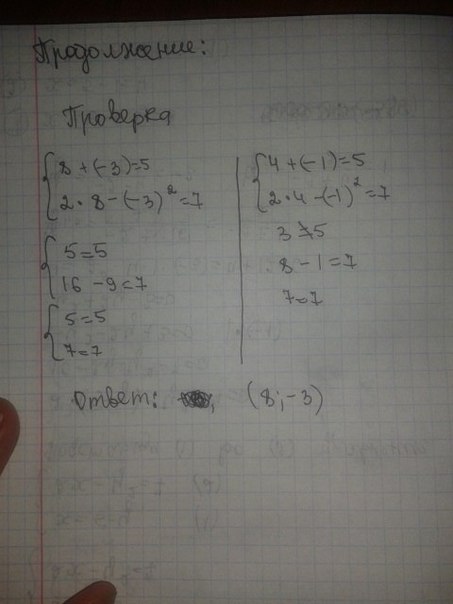 Продолжение:
Проверка
8 + (-3) = 5
2 · 8 - (-3)² = 7
5 = 5
16 - 9 = 7
5 = 5
7 = 7
4 + (-1) = 5
2 · 4 - (-1)² = 7
3 ≠ 5
8 - 1 = 7
7 = 7
Ответ: (8; -3)